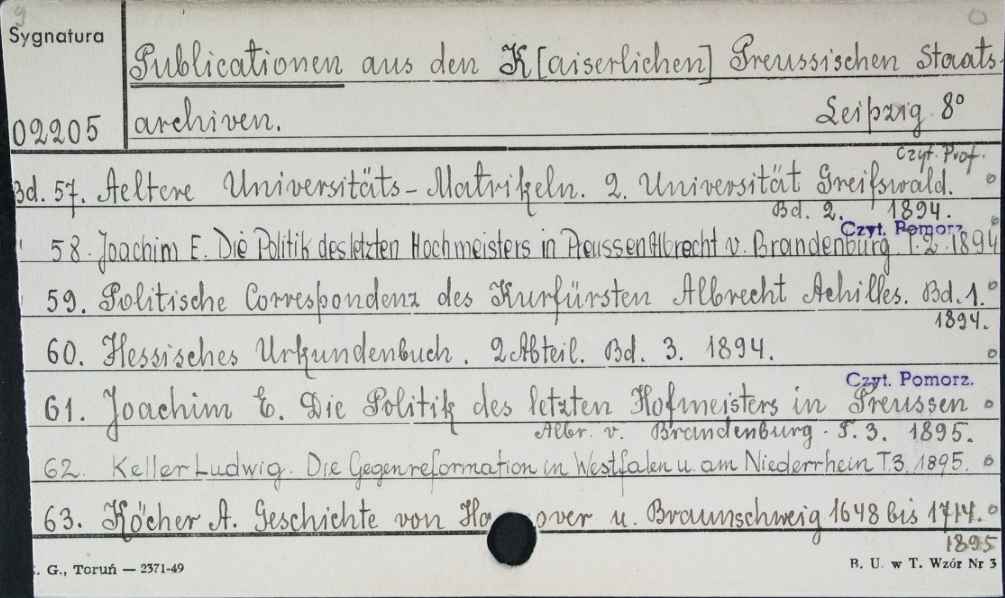 9
Sygnatura
Publicationen aus den K[aiserlichen] Preussischen Staats-
02205
archiven. Leipzig 8°
Czyt. Prof.
Bd. 57. Aeltere Universitäts-Matrikeln. 2. Universität Greifswald.
Bd. 2. 1894.
Czyt. Pomorz.
58. Joachim E. Die Politik des letzten Hochmeisters in Preussen Albrecht v. Brandenburg T. 2. 1894
59. Politische Correspondenz des Kurfürsten Albrecht Achilles. Bd. 1.
1894.
60. Hessisches Urkundenbuch. 2 Abteil. Bd. 3. 1894.
Czyt. Pomorz.
61. Joachim E. Die Politik des letzten Hofmeisters in Preussen
Albr. v. Brandenburg. T. 3. 1895.
62. Keller Ludwig. Die Gegenreformation in Westfalen u. am Niederrhein T. 3. 1895.
63. Köcher A. Geschichte von Ha over u. Braunschweig 1648 bis 1714.
1895
. G., Toruń — 2371-49
B. U. w T. Wzór Nr 3